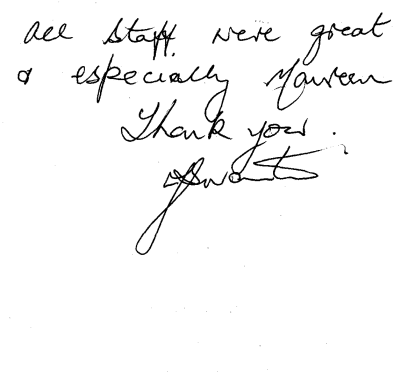 all staff were great
& especially Maureen
Thank you.